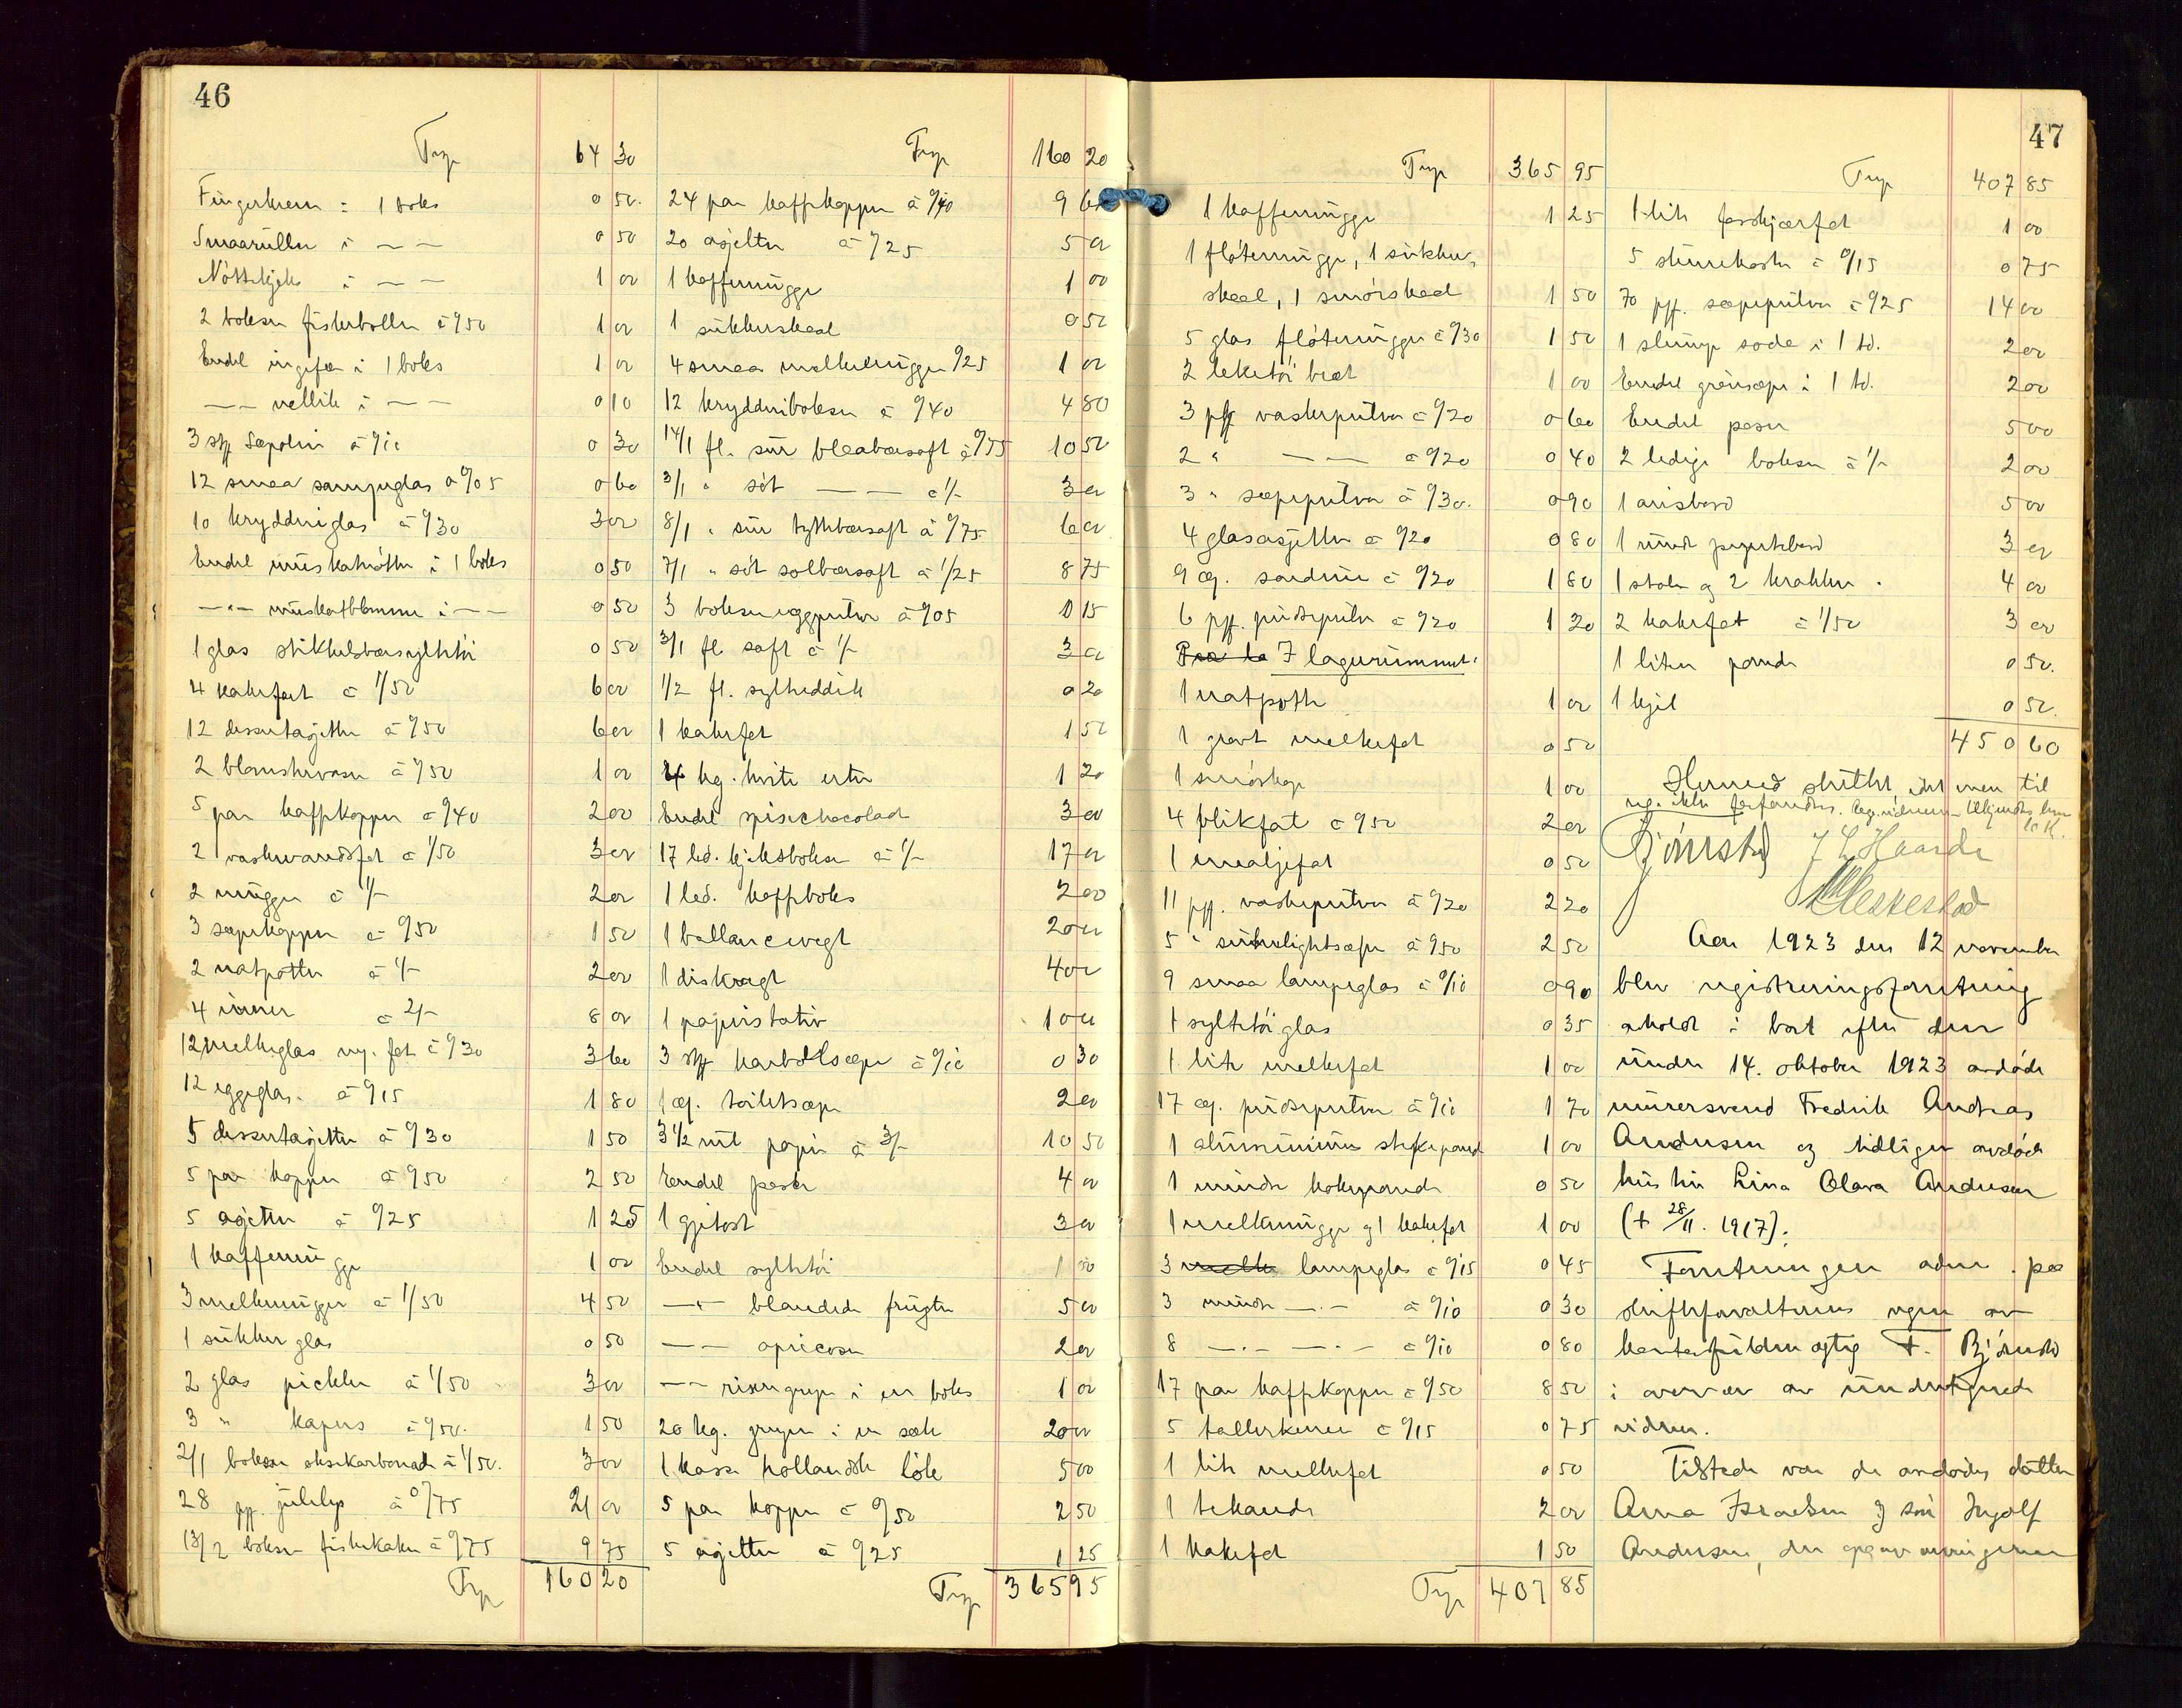 46
Trp 64 30
Fingerkrem i 1 boks 0 50
Smaaruller i — — 0 50
Nöttekjek i — — 1 00
2 bokser fiskeboller á 0/50 1 00
Endel ingefær i 1 boks 1 00
— — nellik i — — 0 10
3 stk Sapolin á 0/10 0 30
12 smaa lampeglas á 0/05 0 60
10 krydderiglas á 0/30 3 00
Endel muskatnötter i 1 boks 0 50
— " — muskatblomme i — — 0 50
1 glas stikkelsbærsyltetöi 0 50
4 kakefat á 1/50 6 00
12 dessertasjetter á 0/50 6 00
2 blomstervaser á 0/50 1 00
5 par kaffekopper á 0/40 2 00
2 vaskevandsfat á 1/50 3 00
2 mugger á 1/- 2 00
3 sæpekopper á 0/50 1 50
2 natpotter á 1/- 2 00
4 á 2/- 8 00
12 melkeglas m. fat á 0/30 3 60
12 eggeglas á 0/15 1 80
5 dessertasjetter á 0/30 1 50
5 par kopper á 0/50 2 50
5 asjetter á 0/25 1 25
1 kaffemugge 1 00
3 melkemugger á 1/50 4 50
1 sukkerglas 0 50
2 glas pickles á 1/50 3 00
3 " kapers á 0/50 1 50
2/1 bokser oksekarbonade á 1/50 3 00
28 pk. julelys á 0/75 21 00
13/2 bokser fiskekaker á 0/75 9 75
Trp 160 20
Trp 160 20
24 par kaffekopper á 0/40 9 60
20 asjetter á 0/25 5 00
1 kaffemugge 1 00
1 sukkerskaal 0 50
4 smaa melkemugger 0/25 1 00
12 krydderibokser á 0/40 4 80
14/1 fl. sur blaabærsaft á 0/75 10 50
3/1 " söt — — á 1/- 3 00
8/1 " sur tyttebærsaft á 0/75 6 00
7/1 " söt solbærsaft á 1/25 8 75
3 bokser eggpulver á 0/05 0 15
3/1 fl saft á 1/- 3 00
1/2 fl. sylteddik 0 20
1 kakefat 1 50
4 kg. hvite erter 1 20
Endel spisechocolade 3 00
17 led. kjeksbokser á 1/- 17 00
1 led. kaffeboks 2 00
1 ballancevegt 20 00
1 diskvegt 40 00
1 papirstativ 10 00
3 stk karbolsæpe á 0/10 0 30
1 æ. toiletsæpe 2 00
3 1/2 rul papir á 3/- 10 50
Endel poser 4 00
1 gjetost 3 00
Endel syltetöi 1 50
— " — blandede frugter 5 00
— — apricoser 2 00
— — risengryn i en boks 1 00
20 kg. gryn i en sæk 20 00
1 kasse hollandsk lök 5 00
5 par kopper á 0/50 2 50
5 asjetter á 0/25 1 25
Trp 365 95
47
Trp 365 95
1 kaffemugge 1 25
1 flötemugge, 1 sukker-
skaal, 1 smörskaal 1 50
5 glas flötemugger á 0/30 1 50
2 leketöi bræt 1 00
3 pk vaskepulver á 0/20 0 60
2 " — — á 0/20 0 40
3 " sæpepulver á 0/30 0 90
4 glasasjetter á 0/20 0 80
9 æ. sardiner á 0/20 1 80
6 pk. pudsepulver á 0/20 1 20
I lagerrummet:
1 natpotte 1 00
1 gravt melkefat 0 50
1 1 00
4 blikfat á 0/50 2 00
1 emaljefat 0 50
11 pk. vaskepulver á 0/20 2 20
5 " sunlightsæpe á 0/50 2 50
9 smaa lampeglas á 0/10 0 90
1 syltetöiglas 0 35
1 lite melkefat 1 00
17 æ. pudsepulver á 0/10 1 70
1 aluminium stekepande 1 00
1 mindre kokepande 0 50
1 melkemugge og 1 kakefat 1 00
3 lampeglas á 0/15 0 45
3 mindre — . — á 0/10 0 30
8 — . — — . — á 0/10 0 80
17 par kaffekopper á 0/50 8 50
5 tallerkener á 0/15 0 75
1 lite melkefat 0 50
1 tekande 2 00
1 kakefat 1 50
Trp 407 85
Trp 407 85
1 lite 1 00
5 skurekoster á 0/15 0 75
70 pk. sæpepulver á 0/25 14 00
1 slump soda i 1 td. 2 00
Endel grönsæpe i 1 td. 2 00
Endel poser 5 00
2 ledige bokser á 1/- 2 00
1 avisbord 5 00
1 rundt 3 00
1 stol og 2 krakker 4 00
2 kakefat á 1/50 3 00
1 liten pande 0 50
1 kjel 0 50
450 60
Hermed sluttet, idet mere til
reg. ikke forfandtes.
Björnstad J L Haarde
Meskestad
Aar 1923 den 12 november
blev registreringsforretning
avholdt i boet efter den
under 14. oktober 1923 avdöde
murersvend Fredrik Andreas
Andersen og tidligere avdöde
hustru Lina Olava Andersen
(+ 28/11. 1917).
Forretningen adm. paa
skifteforvalterens vegne av
kontorfuldmægtig F. Björnstad
i overvær av undertegnede
vidner.
Tilstede var de avdödes datter
Anna Israelsen og sön Ingolf
Andersen, der